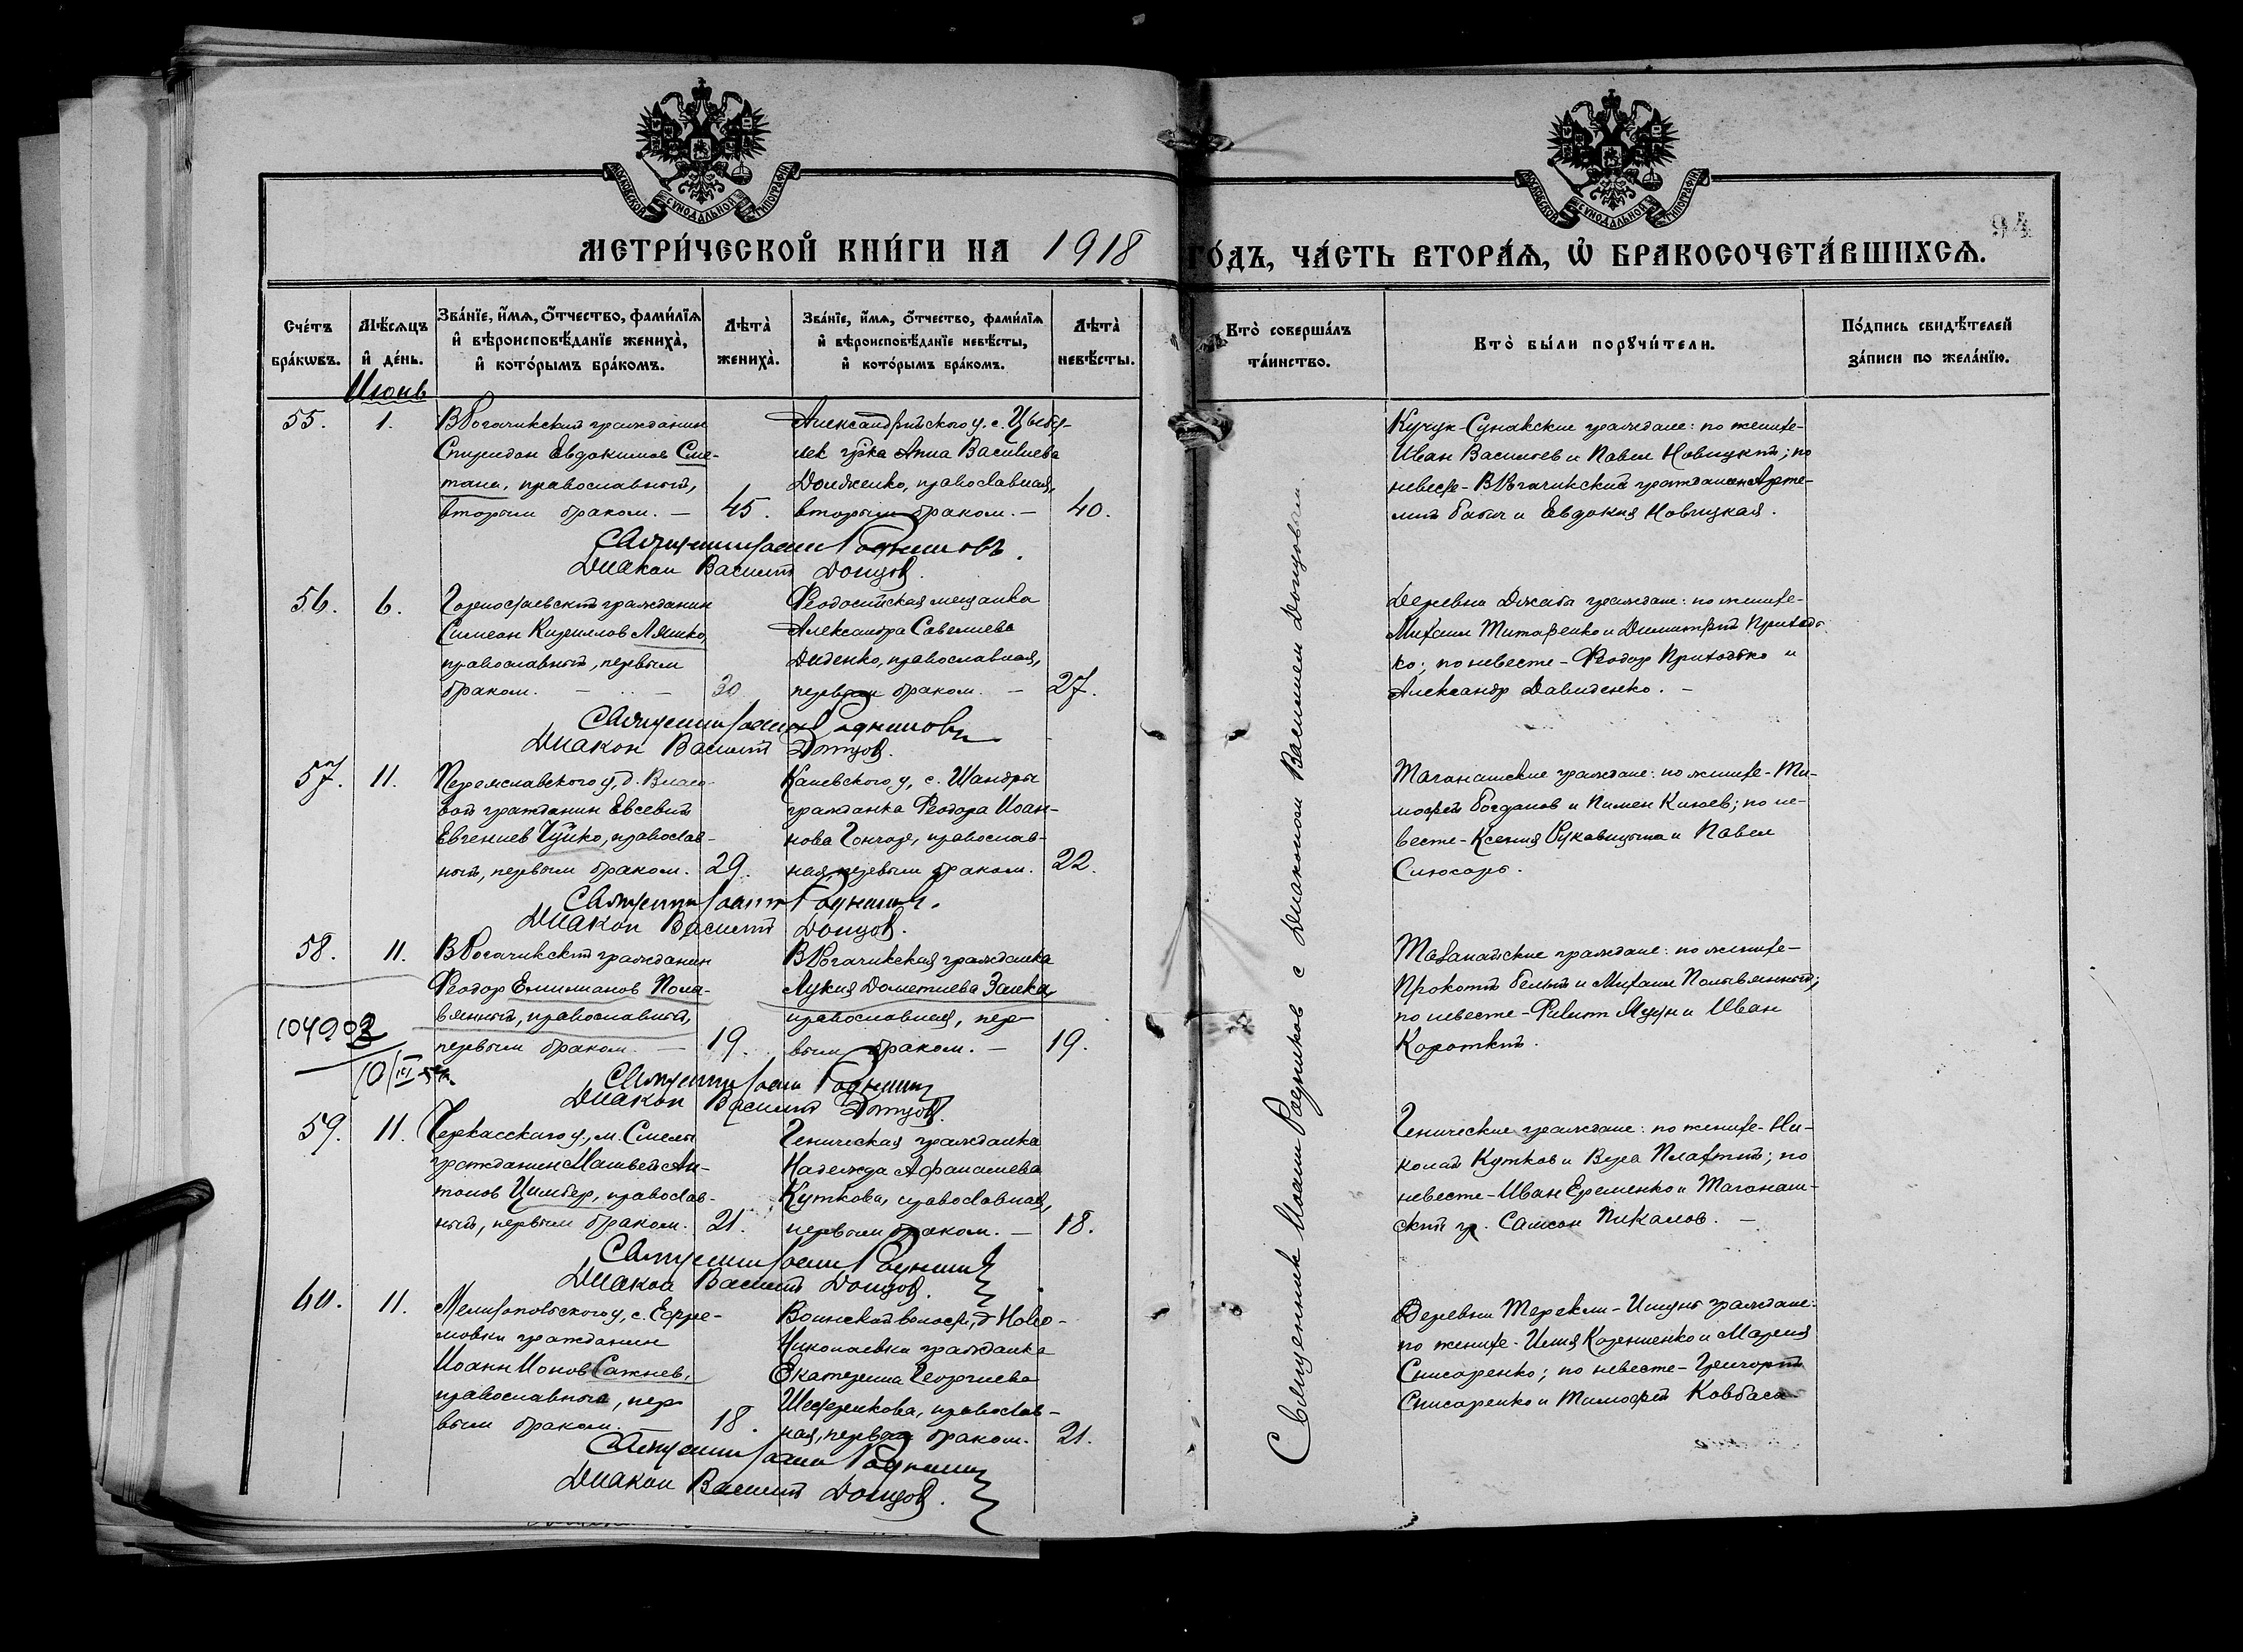 МОСКОВСКОЙ СѴНОДАЛЬНОЙ ТИПОГРАФІИ
МОСКОВСКОЙ СѴНОДАЛЬНОЙ ТИПОГРАФІИ
94
МЕТРИ́ЧЕСКОЙ КНИ́ГИ НА 1918 ГО́ДЪ, ЧА́СТЬ ВТОРА́Ѧ, Ѡ҆ БРАКОСОЧЕТА́ВШИХСѦ.
Сче́тъ бра́кѡвъ.
Мѣ́сѧцъ и҆ де́нь.
Зва́нїе, и҆́мѧ, ѻ҆́тчество, фами́лїѧ и҆ вѣроисповѣ́данїе жениха̀, и҆ кото́рымъ бра́комъ.
Лѣта̀ жениха̀.
Зва́нїе, и҆́мѧ, ѻ҆́тчество, фами́лїѧ и҆ вѣроисповѣ́данїе невѣ́сты, и҆ кото́рымъ бра́комъ.
Лѣта̀ невѣ́сты.
Кто̀ соверша́лъ та́инство.
Кто̀ бы́ли порꙋчи́тели.
По́дпись свидѣ́телей за́писи по жела́нїю.
Июнь
55.
1.
В Рогачикский гражданин
Спиридон Евдокимов Сме-
тана, православный,
вторым браком. —
45.
Александрийского у. с. Цыбу-
лек гр-ка Анна Василиева
Долженко, православная,
вторым браком. —
40.
Кучук-Сунакские граждане: по женихе-
Иван Васильев и Павел Новицкий; по
невесте - В Рогачикский гражданин Арте-
мий Бабич и Евдокия Новицкая.
Священник Иоанн Родников.
Диакон Василий Донцов.
56.
6.
Горностаевский гражданин
Симеон Кириллов Ляшко,
православный, первым
браком. —
30
Феодосийская мещанка
Александра Савелиева
Диденко, православная,
первым браком. —
27.
Деревни Джаба граждане: по женихе-
Михаил Титаренко и Димитрий Приходь-
ко; по невесте - Феодор Приходько и
Александр Давиденко. —
Священник Иоанн Родников
Диакон Василий Донцов.
57.
11.
Переяславского у, д.
гражданин Евсевий
Евгениев Чуйко, православ-
ный, первым браком.
29.
Каневского у, с. Шандры
гражданка Феодора Иоан-
нова Гончар, православ-
ная, первым браком.
22.
Таганашские граждане: по женихе - Ти-
мофей Богданов и Пимен Князев; по не-
весте - Ксения Рукавицына и Павел
Слюсарь.
Священник Иоанн Родников.
Диакон Василий Донцов.
58.
11.
В Рогачикский гражданин
Феодор Емилианов Пола-
вянный, православный,
первым браком —
19.
В Рогачикская гражданка
Лукия Дометиева Заика,
православная, пер-
вым браком. —
19.
граждане: по женихе-
Прокопий Белый и Михаил Полывянный;
по невесте - Филипп и Иван
Короткий.
104902
10/III
Священник Иоанн Родников
Диакон Василий Донцов.
59.
11.
Черкасского у., м. Смелы
гражданин Матвей Ан-
тонов Цимбер, православ-
ный, первым браком.
21.
Геническая гражданка
Надежда Афанасиева
Куткова, православная,
первым браком. —
18.
Генические граждане: по женихе - Ни-
колай Кутков и Вера Плахтий; по
невесте - Иван Еременко и Таганаш-
ский гр. Самсон Пикалов. —
Священник Иоанн Родников
Диакон Василий Донцов.
60.
11.
Мелитопольского у, с. Ефре-
мовки гражданин
Иоанн Ионов Сажнев,
православный, пер-
вым браком.
18.
Воинской волости, д. Ново-
Николаевки гражданка
Екатерина Георгиева
православ-
ная, первым браком.
21.
Деревни Терекли-Ишунь граждане:
по женихе - Илия Корниенко и Мария
Снисаренко; по невесте - Григорий
Снисаренко и Тимофей Ковбаса
Священник Иоанн Родников
Диакон Василий Донцов.
Священник Иоанн Родников с Диаконом Василием Донцовым.